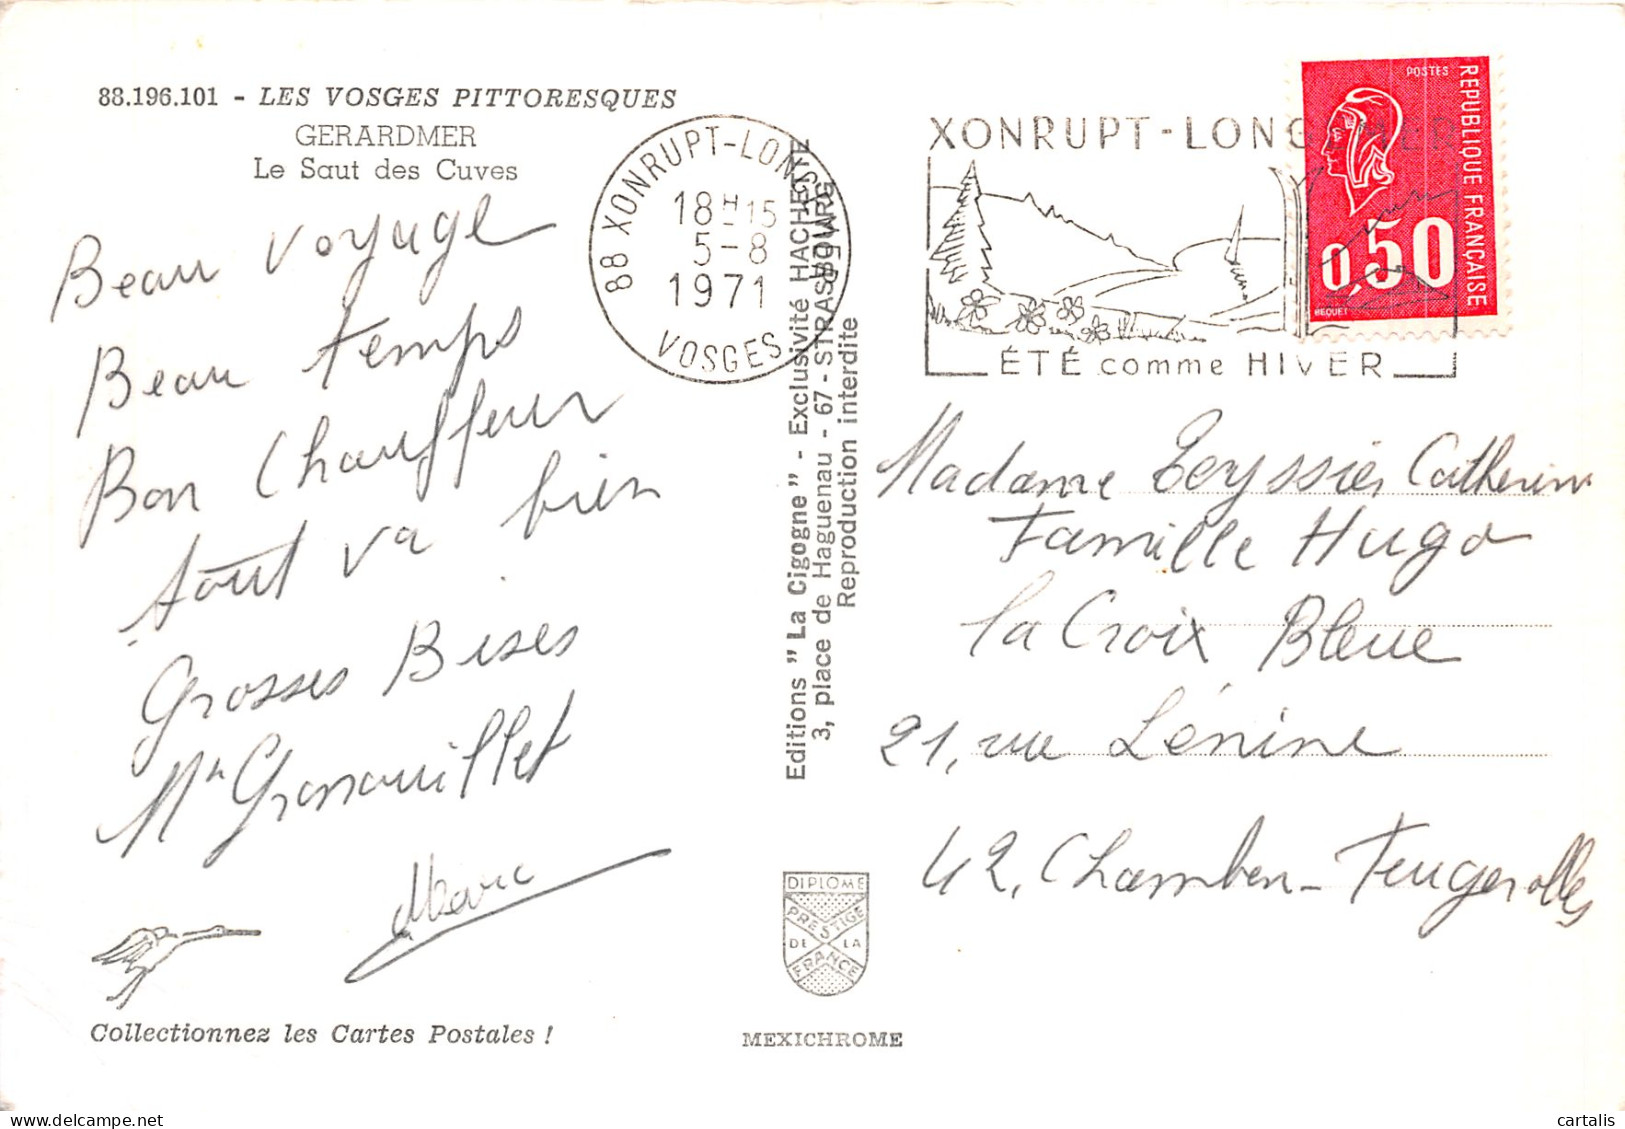 88.196.101 - LES VOSGES PITTORESQUES
GERARDMER
Le Saut des Cuves
Beau Voyage
Beau temps
Bon Chauffeur
tout va bien
Grosses Bises
Mr Grenouillet
Marc
Collectionnez les Cartes Postales !
88 XONRUPT-LONGEMER
18H15
5-8
1971
VOSGES
Editions "La Cigogne" - Exclusivité HACHETTE
3, place de Haguenau - 67 - STRASBOURG
Reproduction interdite
DIPLOME
PRESTIGE
DE LA
FRANCE
MEXICHROME
XONRUPT-LONGEMER
ÉTÉ comme HIVER
POSTES
REPUBLIQUE FRANÇAISE
0,50
BEQUET
Madame Teyssier Catherine
Famille Hugo
la Croix Bleue
21, rue Lénine
42, Chambon-Feugerolles
cartalis